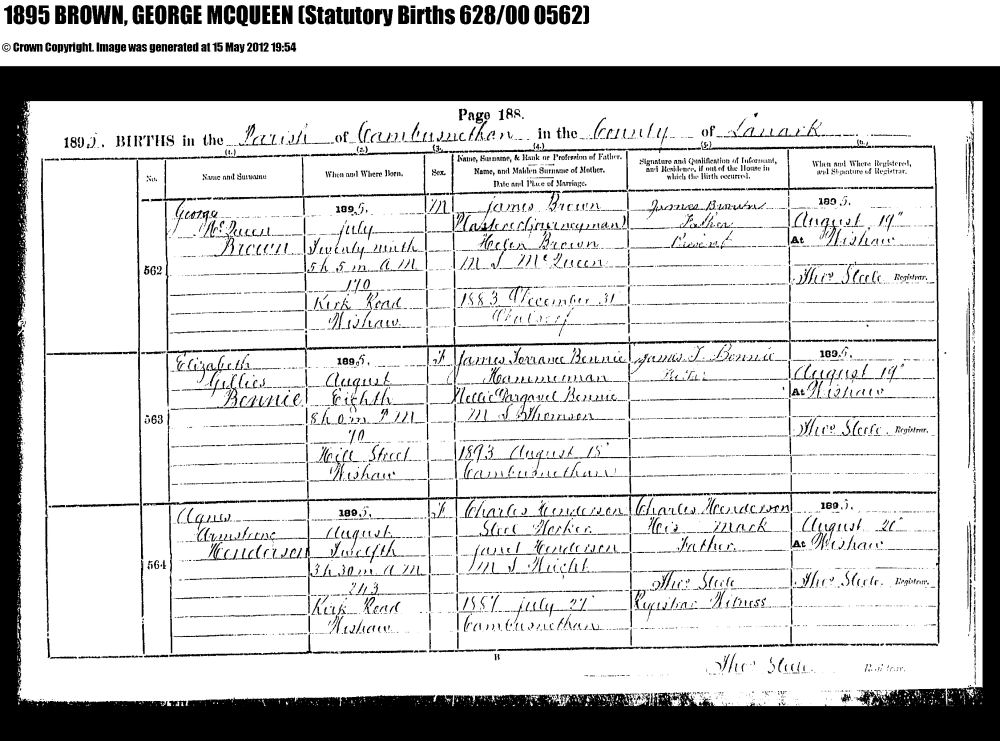 1895 BROWN, GEORGE MCQUEEN (Statutory Births 628/00 0562)
© Crown Copyright. Image was generated at 15 May 2012 19:54
Page 188.
1895. BIRTHS in the Parish of Cambusnethan in the County of Lanark
(1.) (2.) (3.) (4.) (5.) (6.)
No.
Name and Surname
When and Where Born.
Sex.
Name, Surname, & Rank or Profession of Father.
Name, and Maiden Surname of Mother.
Date and Place of Marriage.
Signature and Qualification of Informant,
and Residence, if out of the House in
which the Birth occurred.
When and Where Registered,
and Signature of Registrar.
562
George
McQueen
Brown
1895.
July
Twenty ninth
5 h 5 m A M
170
Kirk Road
Wishaw
M
James Brown
Plasterer (Journeyman)
Helen Brown
M S McQueen
1883 December 31
James Brown
Father
Present
1895.
August 19"
At Wishaw
Thos Steele Registrar.
563
Elizabeth
Gillies
Bennie
1895.
August
Eighth
8 h 0 m P M
70
Hill Street
Wishaw
F
James Torrance Bennie
Hammerman
Nellie Pargavel Bennie
M S Thomson
1893 August 18"
Cambusnethan
James T. Bennie
Father
1895.
August 19"
At Wishaw
Thos Steele. Registrar.
564
Agnes
Armstrong
Henderson
1895.
August
Twelfth
3 h 30 m A M
243
Kirk Road
Wishaw
F
Charles Henderson
Steel Worker
Janet Henderson
M S Wright
1887 July 27"
Cambusnethan
Charles Henderson
His Mark
Father.
Thos Steele
Registrar Witness
1895.
August 20"
At Wishaw
Thos Steele. Registrar.
B
Thos Steele. Registrar.